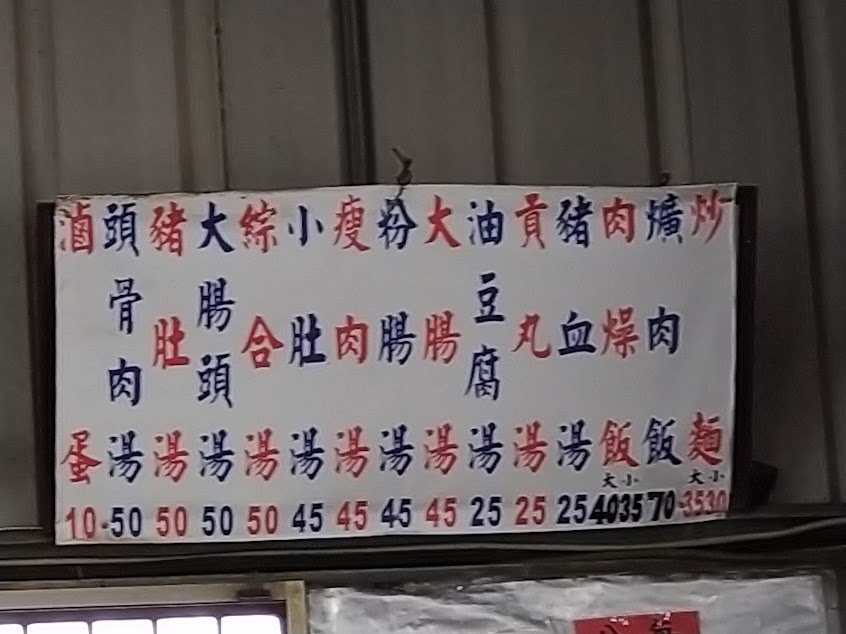 炒麵 大35 小30
爌肉飯 70
肉燥飯 大40 小35
豬血湯 25
貢丸湯 25
油豆腐湯 25
大腸湯 45
粉腸湯 45
瘦肉湯 45
小肚湯 45
綜合湯 50
大腸頭湯 50
豬肚湯 50
頭骨肉湯 50
滷蛋 10